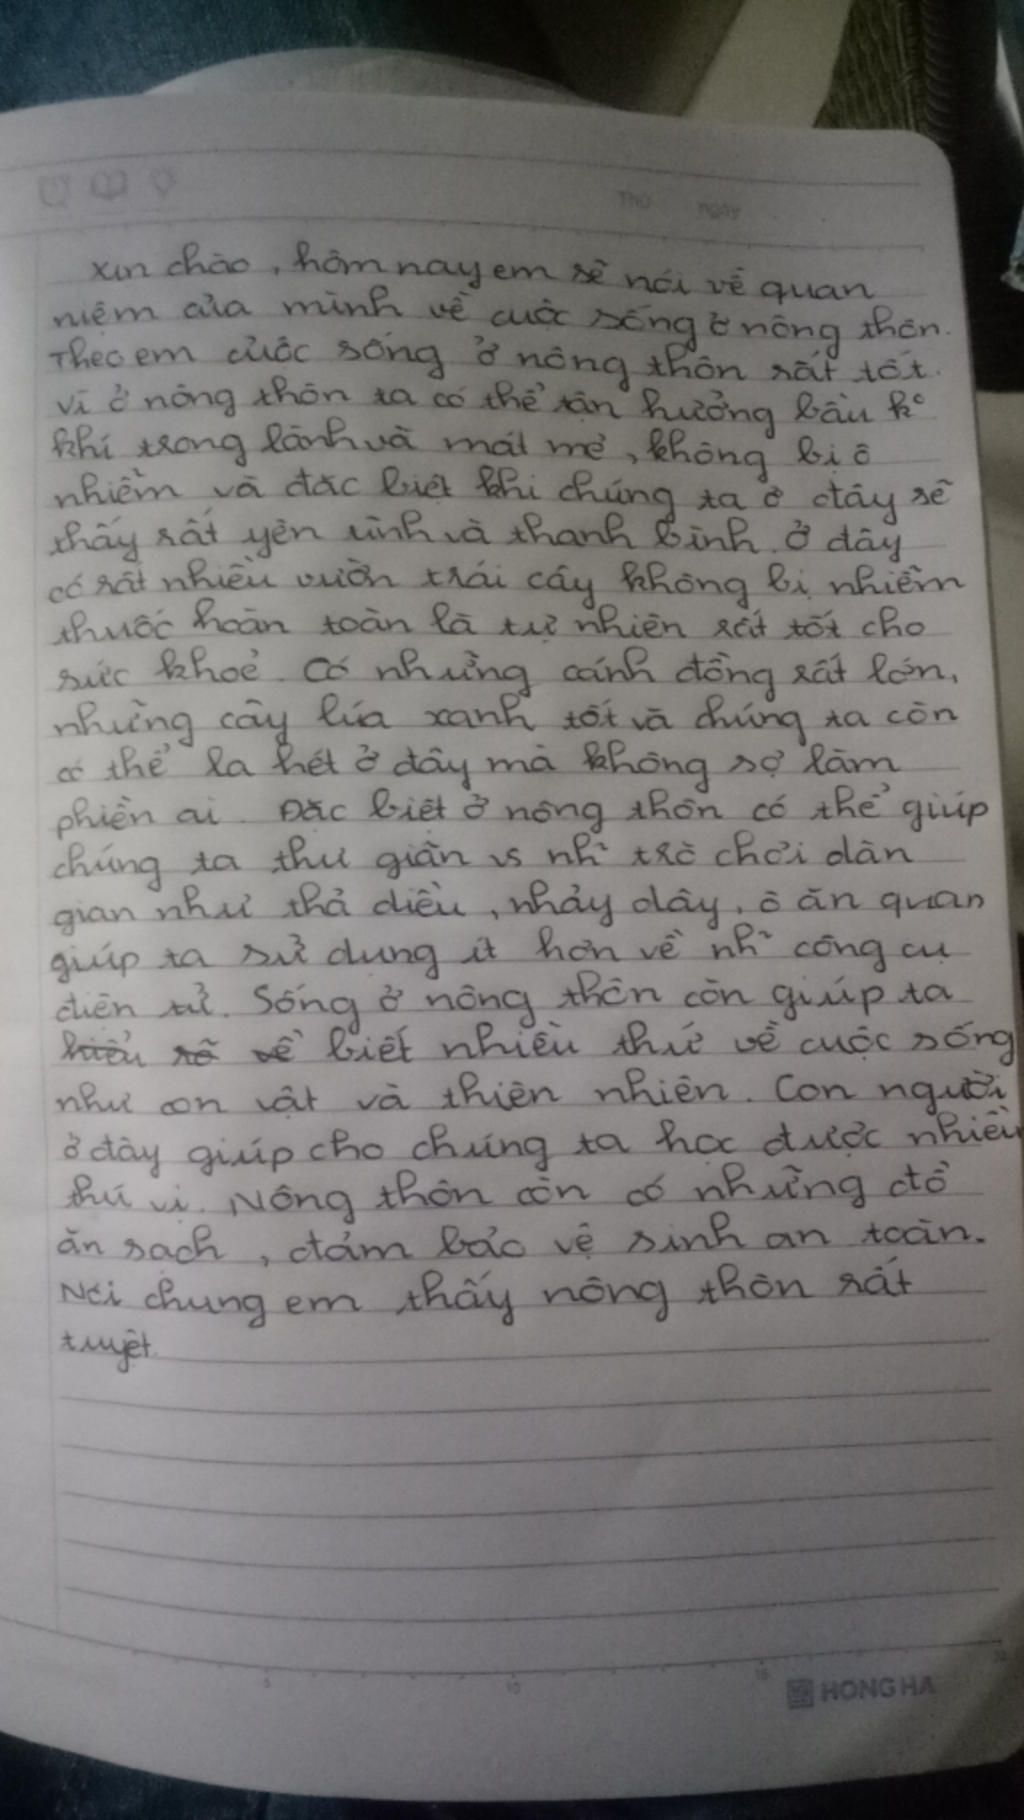 Thứ ngày
Xin chào, hôm nay em sẽ nói về quan
niệm của mình về cuộc sống ở nông thôn.
Theo em cuộc sống ở nông thôn rất tốt.
vì ở nông thôn ta có thể tận hưởng bầu k°
khí trong lành và mát mẻ, không bị ô
nhiễm và đặc biệt khi chúng ta ở đây sẽ
thấy rất yên tĩnh và thanh bình. ở đây
có rất nhiều vườn trái cây không bị nhiễm
thuốc hoàn toàn là tự nhiên rất tốt cho
sức khoẻ. Có những cánh đồng rất lớn,
những cây lúa xanh tốt và chúng ta còn
có thể la hét ở đây mà không sợ làm
phiền ai. Đặc biệt ở nông thôn có thể giúp
chúng ta thư giãn vs nh~ trò chơi dân
gian như thả diều, nhảy dây, ô ăn quan
giúp ta sử dụng ít hơn về nh~ công cụ
điện tử. Sống ở nông thôn còn giúp ta
hiểu rõ về biết nhiều thứ về cuộc sống
như con vật và thiên nhiên. Con người
ở đây giúp cho chúng ta học được nhiều
thú vị. Nông thôn còn có những đồ
ăn sạch, đảm bảo vệ sinh an toàn.
Nói chung em thấy nông thôn rất
tuyệt.
5 10 15 20
HONG HA